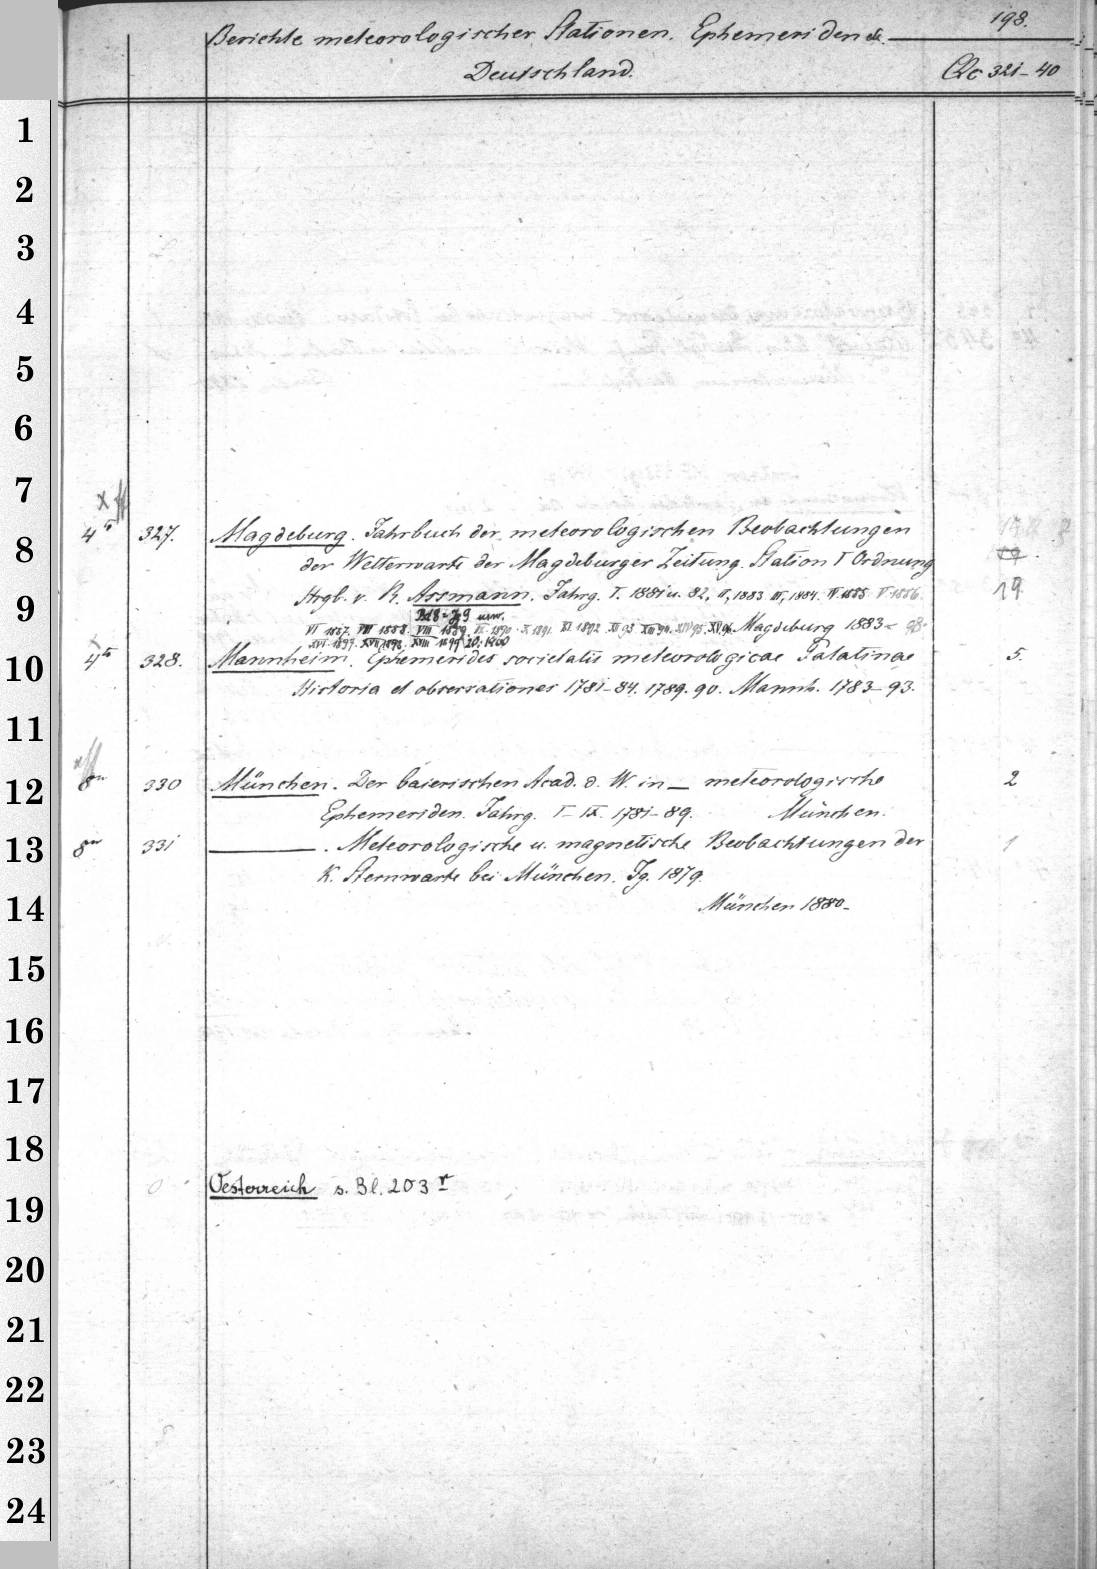 198.
Berichte meteorologischer Stationen. Ephemeriden etc.
Deutschland. Qc 321-40
1
2
3
4
5
6
7
8
9
10
11
12
13
14
15
16
17
18
19
20
21
22
23
24
4to 327. Magdeburg. Jahrbuch der meteorologischen Beobachtungen
der Wetterwarte der Magdeburger Zeitung. Station I Ordnung
Hrgb. v. R. Assmann. Jahrg. I. 1881 u. 82, II, 1883 III, 1884. IV 1885 V 1886. 19.
Bd 8 = Jg 9 usw.
VI 1887. VII 1888. VIII 1889. IX 1890. X 1891. XI 1892 XII 93 XIII 94. XIV 95. XV 96. Magdeburg 1883- 98.
XVI 1897. XVII 1898. XVIII 1899 20. 1900
4to 328. Mannheim. Ephemerides societatis meteorologicae Palatinae 5.
Historia et observationes 1781-84. 1789. 90. Mannh. 1783-93.
8vo 330 München. Der baierischen Acad. d. W. in _ meteorologische 2
Ephemeriden. Jahrg. I-IX. 1781-89. München.
8vo 331 ———. Meteorologische u. magnetische Beobachtungen der 1
K. Sternwarte bei München. Jg. 1879.
München 1880-
Oesterreich s. Bl. 203r